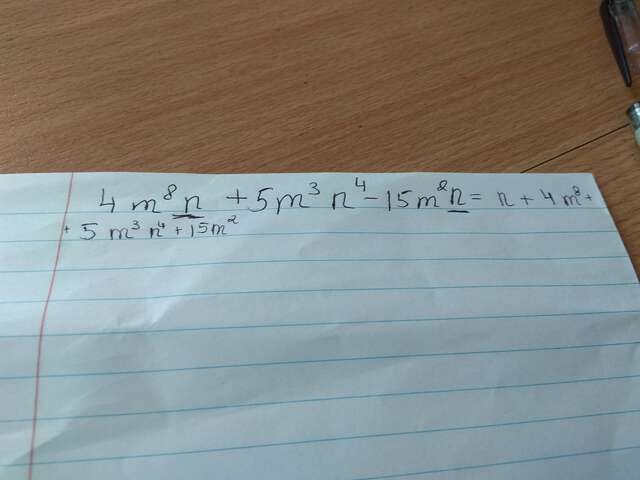 4 m⁸n + 5m³ n⁴ - 15m²n = n + 4m⁸ +
+ 5 m³ n⁴ + 15m²